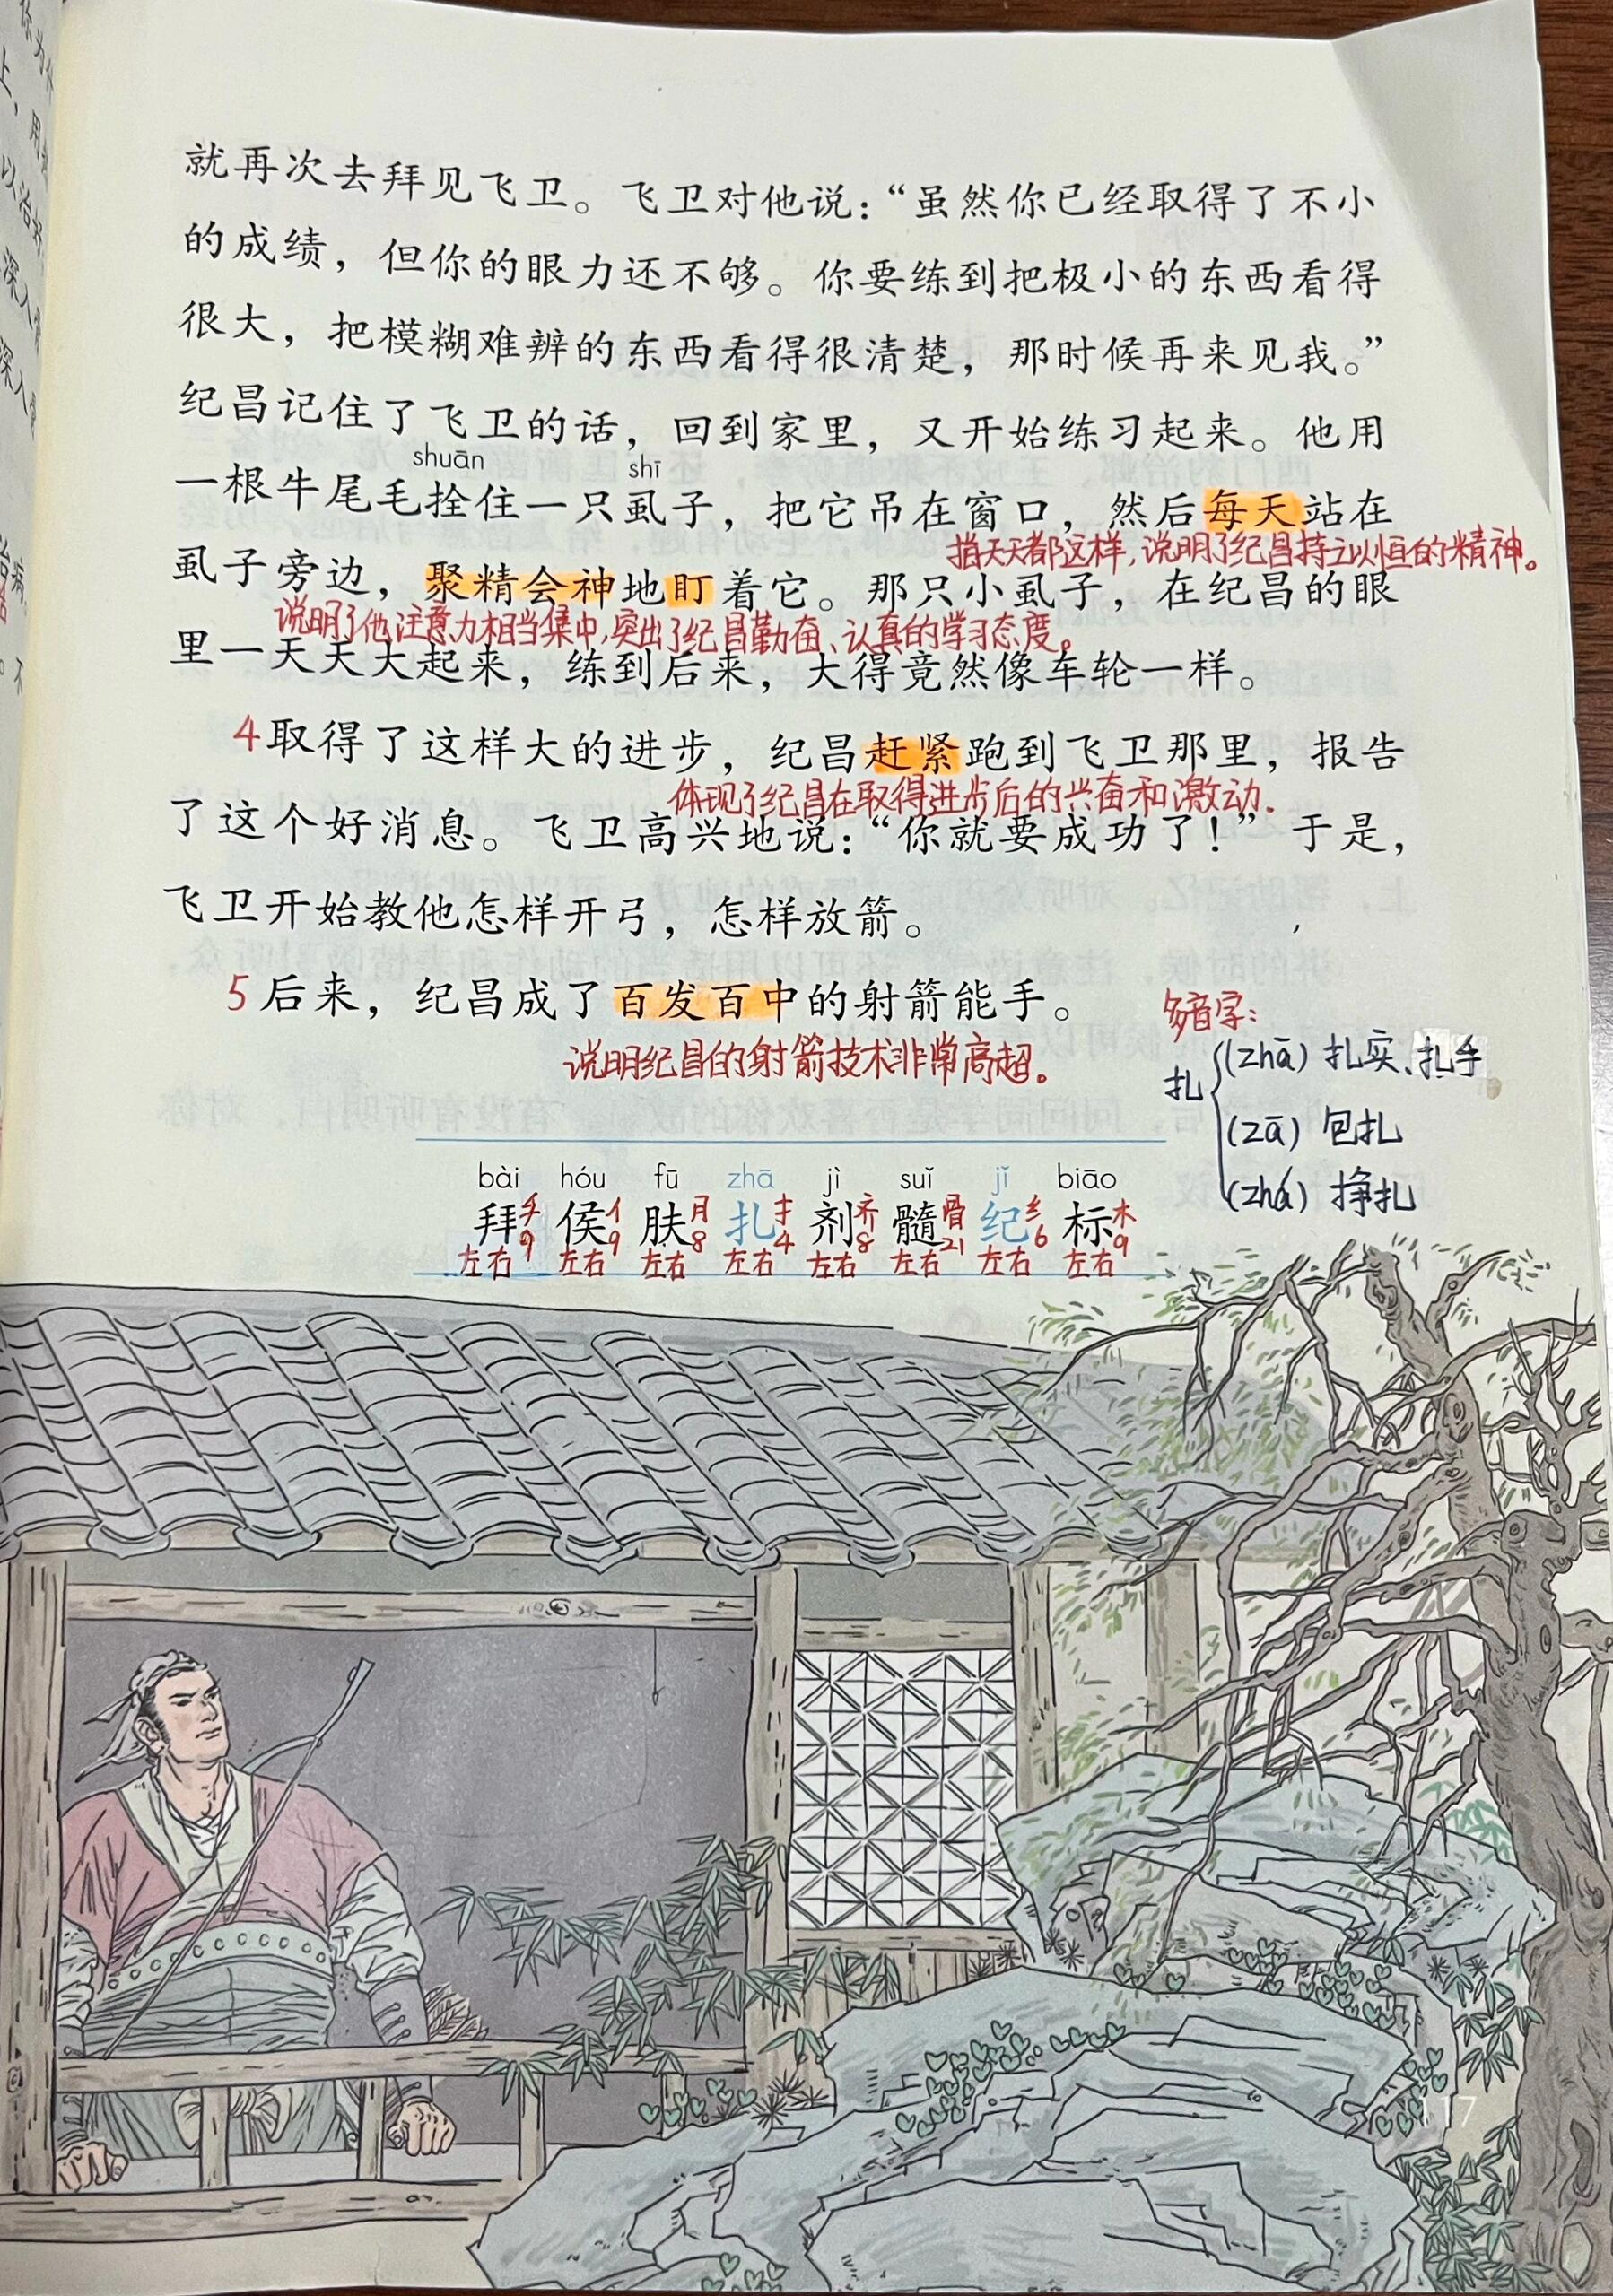 就再次去拜见飞卫。飞卫对他说：“虽然你已经取得了不小
的成绩，但你的眼力还不够。你要练到把极小的东西看得
很大，把模糊难辨的东西看得很清楚，那时候再来见我。”
纪昌记住了飞卫的话，回到家里，又开始练习起来。他用
shuān shī
一根牛尾毛拴住一只虱子，把它吊在窗口，然后每天站在
指天天都这样，说明了纪昌持之以恒的精神。
虱子旁边，聚精会神地盯着它。那只小虱子，在纪昌的眼
说明了他注意力相当集中，突出了纪昌勤奋、认真的学习态度。
里一天天大起来，练到后来，大得竟然像车轮一样。
4取得了这样大的进步，纪昌赶紧跑到飞卫那里，报告
体现了纪昌在取得进步后的兴奋和激动.
了这个好消息。飞卫高兴地说：“你就要成功了！”于是，
飞卫开始教他怎样开弓，怎样放箭。
5后来，纪昌成了百发百中的射箭能手。
说明纪昌的射箭技术非常高超。
多音字：
扎 (zhā) 扎实、扎手
(zā) 包扎
(zhá) 挣扎
bài hóu fū zhā jì suǐ jǐ biāo
拜 侯 肤 扎 剂 髓 纪 标
手 亻 月 扌 齐 骨 纟 木
9 9 8 4 8 21 6 9
左右 左右 左右 左右 左右 左右 左右 左右
117